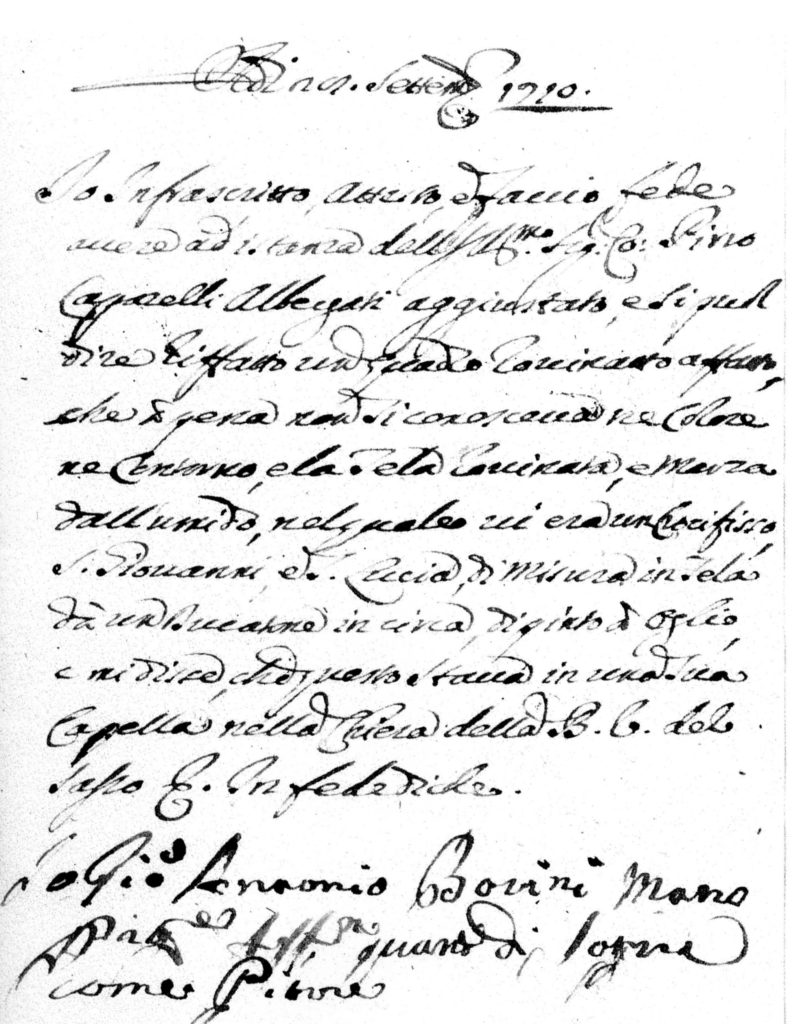 Adi 21. Settembre 1710.
Io Infrascritto, Attesto, e faccio fede
avere ad istanza dell Ill.mo Sig. Co: Pirro
Caprelli Albegati aggiustato, e si puol
dire riffatto un quadro rovinatto affatto,
che a pena non si conosceva ne Colore
ne Contorno, e la Tela rovinata, e marza
dall umido, nel quale vi era un Crocifisso,
S. Giovanni, e S. Lucia, di misura in Tela
da un Ducatone in circa, dipinto a Oglio,
e mi disse, che questo stava in una sua
Capella nella Chiesa della B. V. del
Sasso In fede dich.
Io Gio. Antonio Borini Mano
quanto di sopra
Come Pitore